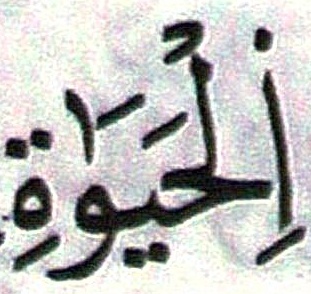 اِ۬لْحَيَوٰةِ